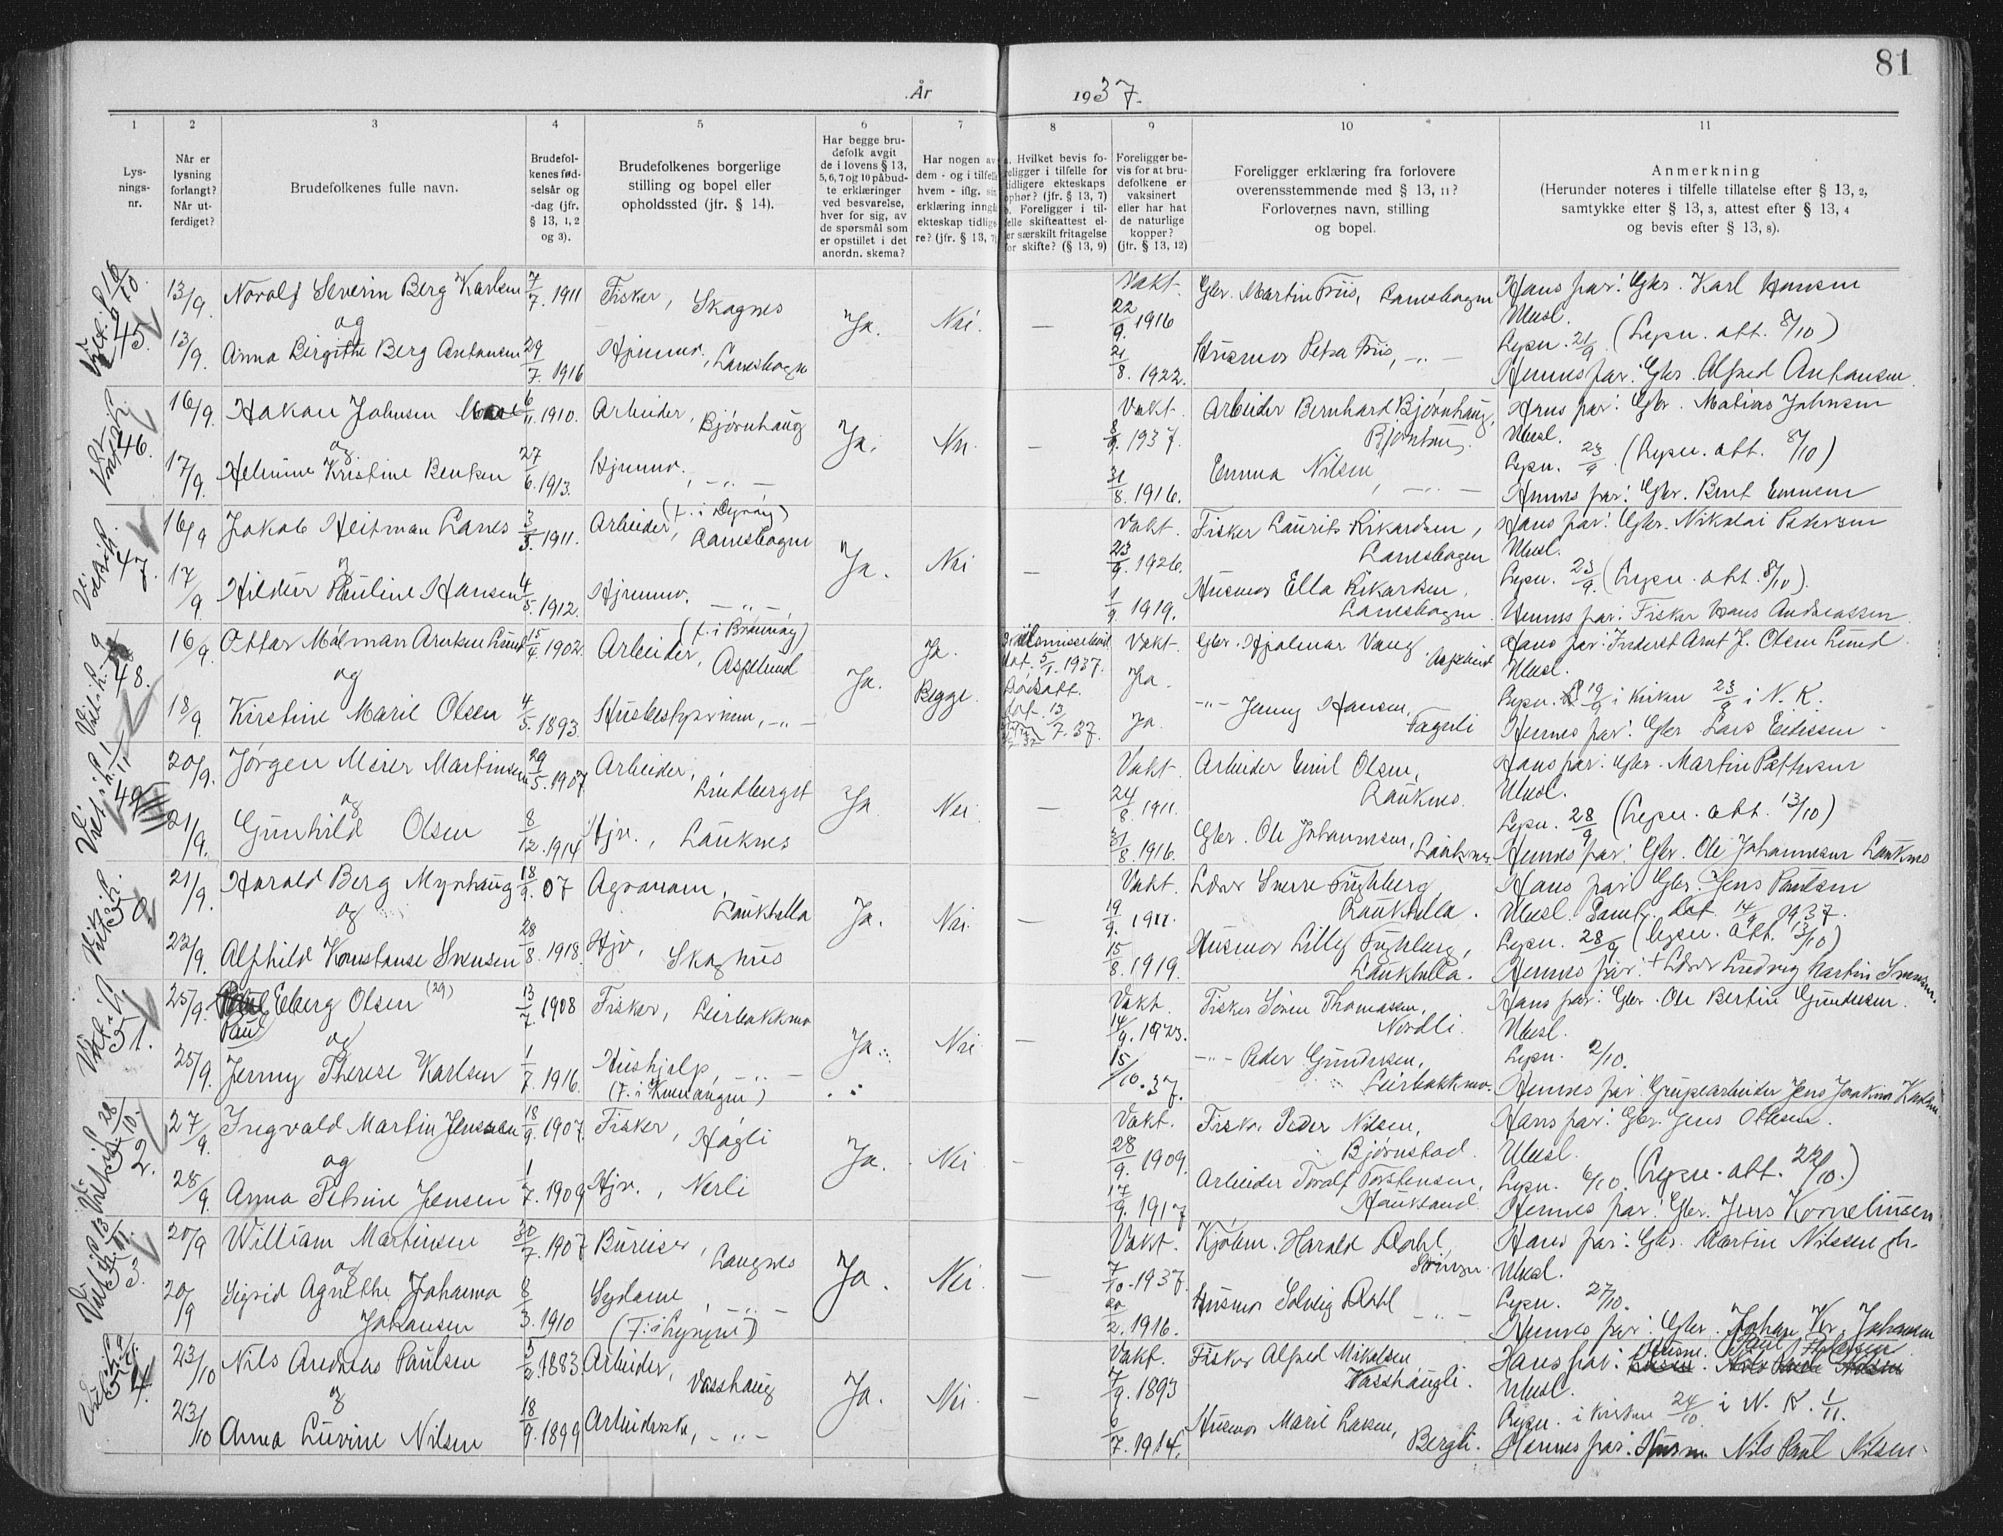 81
År 1937.
1 2 3 4 5 6 7 8 9 10 11
Lys-
nings-
nr.
Når er
lysning
forlangt?
Når ut-
ferdiget?
Brudefolkenes fulle navn.
Brudefol-
kenes fød-
selsår og
-dag (jfr.
§ 13, 1, 2
og 3).
Brudefolkenes borgerlige
stilling og bopel eller
opholdssted (jfr. § 14).
Har begge bru-
defolk avgit
de i lovens § 13,
5, 6, 7 og 10 påbud-
te erklæringer
ved besvarelse,
hver for sig, av
de spørsmål som
er opstillet i det
anordn. skema?
Har nogen av
dem - og i tilfelle
hvem - iflg. sin
erklæring inngå
ekteskap tidlige-
re? (jfr. § 13, 7)
a. Hvilket bevis fo-
religger i tilfelle for
tidligere ekteskaps
ophør? (jfr. § 13, 7)
b. Foreligger i til-
felle skifteattest el-
er særskilt fritagelse
for skifte? (§ 13, 9)
Foreligger be-
vis for at bru-
defolkene er
vaksinert
eller har hat
de naturlige
kopper?
(jfr. § 13, 12)
Foreligger erklæring fra forlovere
overensstemmende med § 13, 11?
Forlovernes navn, stilling
og bopel.
Anmerkning
(Herunder noteres i tilfelle tillatelse efter § 13, 2,
samtykke efter § 13, 3, attest efter § 13, 4
og bevis efter § 13, 8).
45. 13/9. Norolf Severin Berg Karlsen 7/7. 1911 Fisker, Skognes Ja. Nei. — Vakt. 22/9. 1916 Gbr. Martin Friis, Lanesbogen Hans far: Gbr. Karl Hansen
og Ulusl.
13/9. Anna Birgithe Berg Antonsen 29/7. 1916 Hjemmev. Lanesbogen 21/8. 1922. Husmor Petra Friis, — " — Lysn. 21/9. (Lysn. att. 8/10)
Hennes far: Gbr. Alfred Antonsen
46. 16/9. Hakon Johnsen 6/11. 1910. Arbeider, Bjørnhaug Ja. Nei — Vakt. 8/9. 1937. Arbeider Bernhard Bjørnhaug, Bjørnhaug Hans far: Gbr. Matias Johnsen
og Ulusl.
17/9. Helmine Kristine Bentsen 27/6. 1913. Hjemmev. — " — 31/8. 1916. Emma Nilsen, — " — Lysn. 23/9. (Lysn. att. 8/10)
Hennes far: Gbr. Bent
47. 16/9 Jakob Heitman Lanes 3/3. 1911. Arbeider, (f. i Dyrøy) Lanesbogen Ja. Nei — Vakt. 23/9. 1926. Fisker Laurits Rikardsen, Lanesbogen Hans far: Gbr. Nikolai Pedersen
og Ulusl.
17/9 Hildur Pauline Hansen 4/5. 1912. Hjemmev. — " — 1/9 1919. Husmor Ella Rikardsen, Lanesbogen Lysn. 23/9 (Lysn. att. 8/10).
Hennes far: Fisker Hans Andreassen
48. 16/9. Ottar Målman Arntsen Lund 15/4. 1902. Arbeider, Aspelund Ja. Ja. Begge. 5/1. 1937. Vakt. Ja. Gbr. Hjalmar Vang Aspelund Hans far: Inderst Arnt J. Olsen Lund
og Ulusl.
18/9. Kirstine Marie Olsen 4/5. 1893. Husbestyrerinne, — " — 13/7. 37. Ja. — " — Jenny Hansen, Fagerli Lysn. 19/9 i kirken 23/9 i N. K.
Hennes far: Gbr. Lars
49. 20/9. Jørgen Meier Martinsen 29/5. 1907 Arbeider, Lindbergst Ja Nei — Vakt. 24/8. 1911. Arbeider Emil Olsen, Lauknes. Hans far: Gbr. Martin Pettersen
og Ulusl.
21/9. Gunhild Olsen 8/12. 1914 Hjv., Lauknes 31/8. 1916. Gbr. Ole Johannesen, Lauknes. Lysn. 28/9 (Lysn. att. 13/10)
Hennes far: Gbr. Ole Johannesen Lauknes
50. 21/9. Harald Berg Myrhaug 18/9. 07 Agronom, Laukhella Ja. Nei. — Vakt. 19/9. 1911. Lærer Sverre Fuglberg, Laukhella. Hans far Gbr. Jens Paulsen
og Ulusl. Samt. dat. 14/9 1937.
22/9. Alfhild Konstanse Svensen 28/8. 1918. Hjv, Skognes 15/8. 1919. Husmor Lilly Fuglberg, Laukhella. Lysn. 28/9 (Lysn. att. 13/10)
Hennes far: + Lærer Ludvig Martin Svensen.
51. 25/9. Paul Eberg Olsen (29) 13/7. 1908 Fisker, Leirbakkmo Ja. Nei — Vakt. 14/9. 1923. Fisker Søren Thomassen, Nordli. Hans far: Gbr. Ole Bertin Gundersen.
og Ulusl.
25/9. Jenny Therese Karlsen 1/7. 1916. Hushjelp, — " — (F. i Kvænangen) 15/10. 37. — " — Peder Gundersen, Leirbakkmo. Lysn. 2/10.
Hennes far: Grubearbeider Jens Joakim Karlsen
52. 27/9. Ingvald Martin Jenssen 18/9. 1907. Fisker, Høgli Ja. Nei — Vakt. 28/9. 1909. Fisker Peder Nilsen, Bjørnstad. Hans far: Gbr. Jens Ottesen.
og Ulusl.
28/9. Anna Petrine Jensen 1/7. 1909 Hjv., Nerli 17/9. 1917 Arbeider Toralf Torstensen, Haukland. Lysn. 6/10. (Lysn. att. 22/10.)
Hennes far: Gbr. Jens Korneliussen
53. 20/9 William Martinsen 30/7. 1907 Bureiser, Langnes Ja. Nei. — Vakt. 7/10. 1937. Kjøbm. Harald Dahl, Hans far: Gbr. Martin Nilssen
og Ulusl.
20/9 Sigrid Agnethe Johanna Johansen 8/3. 1910 Sydame, — " — (F. i Lyngen) 20/2. 1916. Husmor Solveig Dahl — " — Lysn. 27/10.
Hennes far: Gbr. Johan Kr. Johansen
54. 23/10 Nils Andreas Paulsen 5/2. 1883. Arbeider, Vasshaug Ja. Nei — Vakt. 7/9. 1893 Fisker Alfred Mikalsen, Vasshaugli. Hans far:
og Ulusl.
23/10 Anna Luvine Nilsen 18/9. 1899 Arbeiderske, — " — 6/7. 1914. Husmor Marie Larsen, Bergli. Lysn. i kirken 24/10 i N. K. 1/11.
Hennes far: Husm. Nils Paul Nilsen.